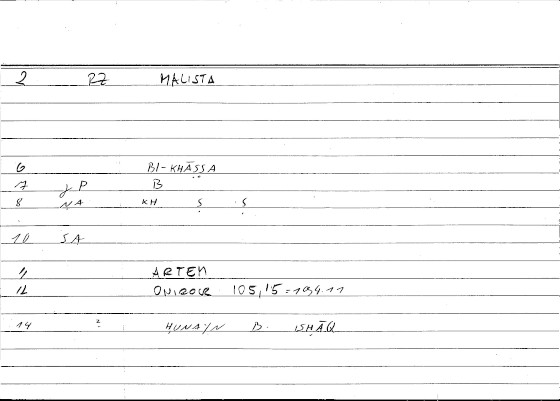 2 RZ MALISTA
6 BI-KHĀṢṢA
7 γ P B
8 NA KH Ṣ Ṣ
10 SA
11 ARTEM
12 ONIROCR 105,15 = 194.11
14 ? HUNAYN B. ISHĀQ